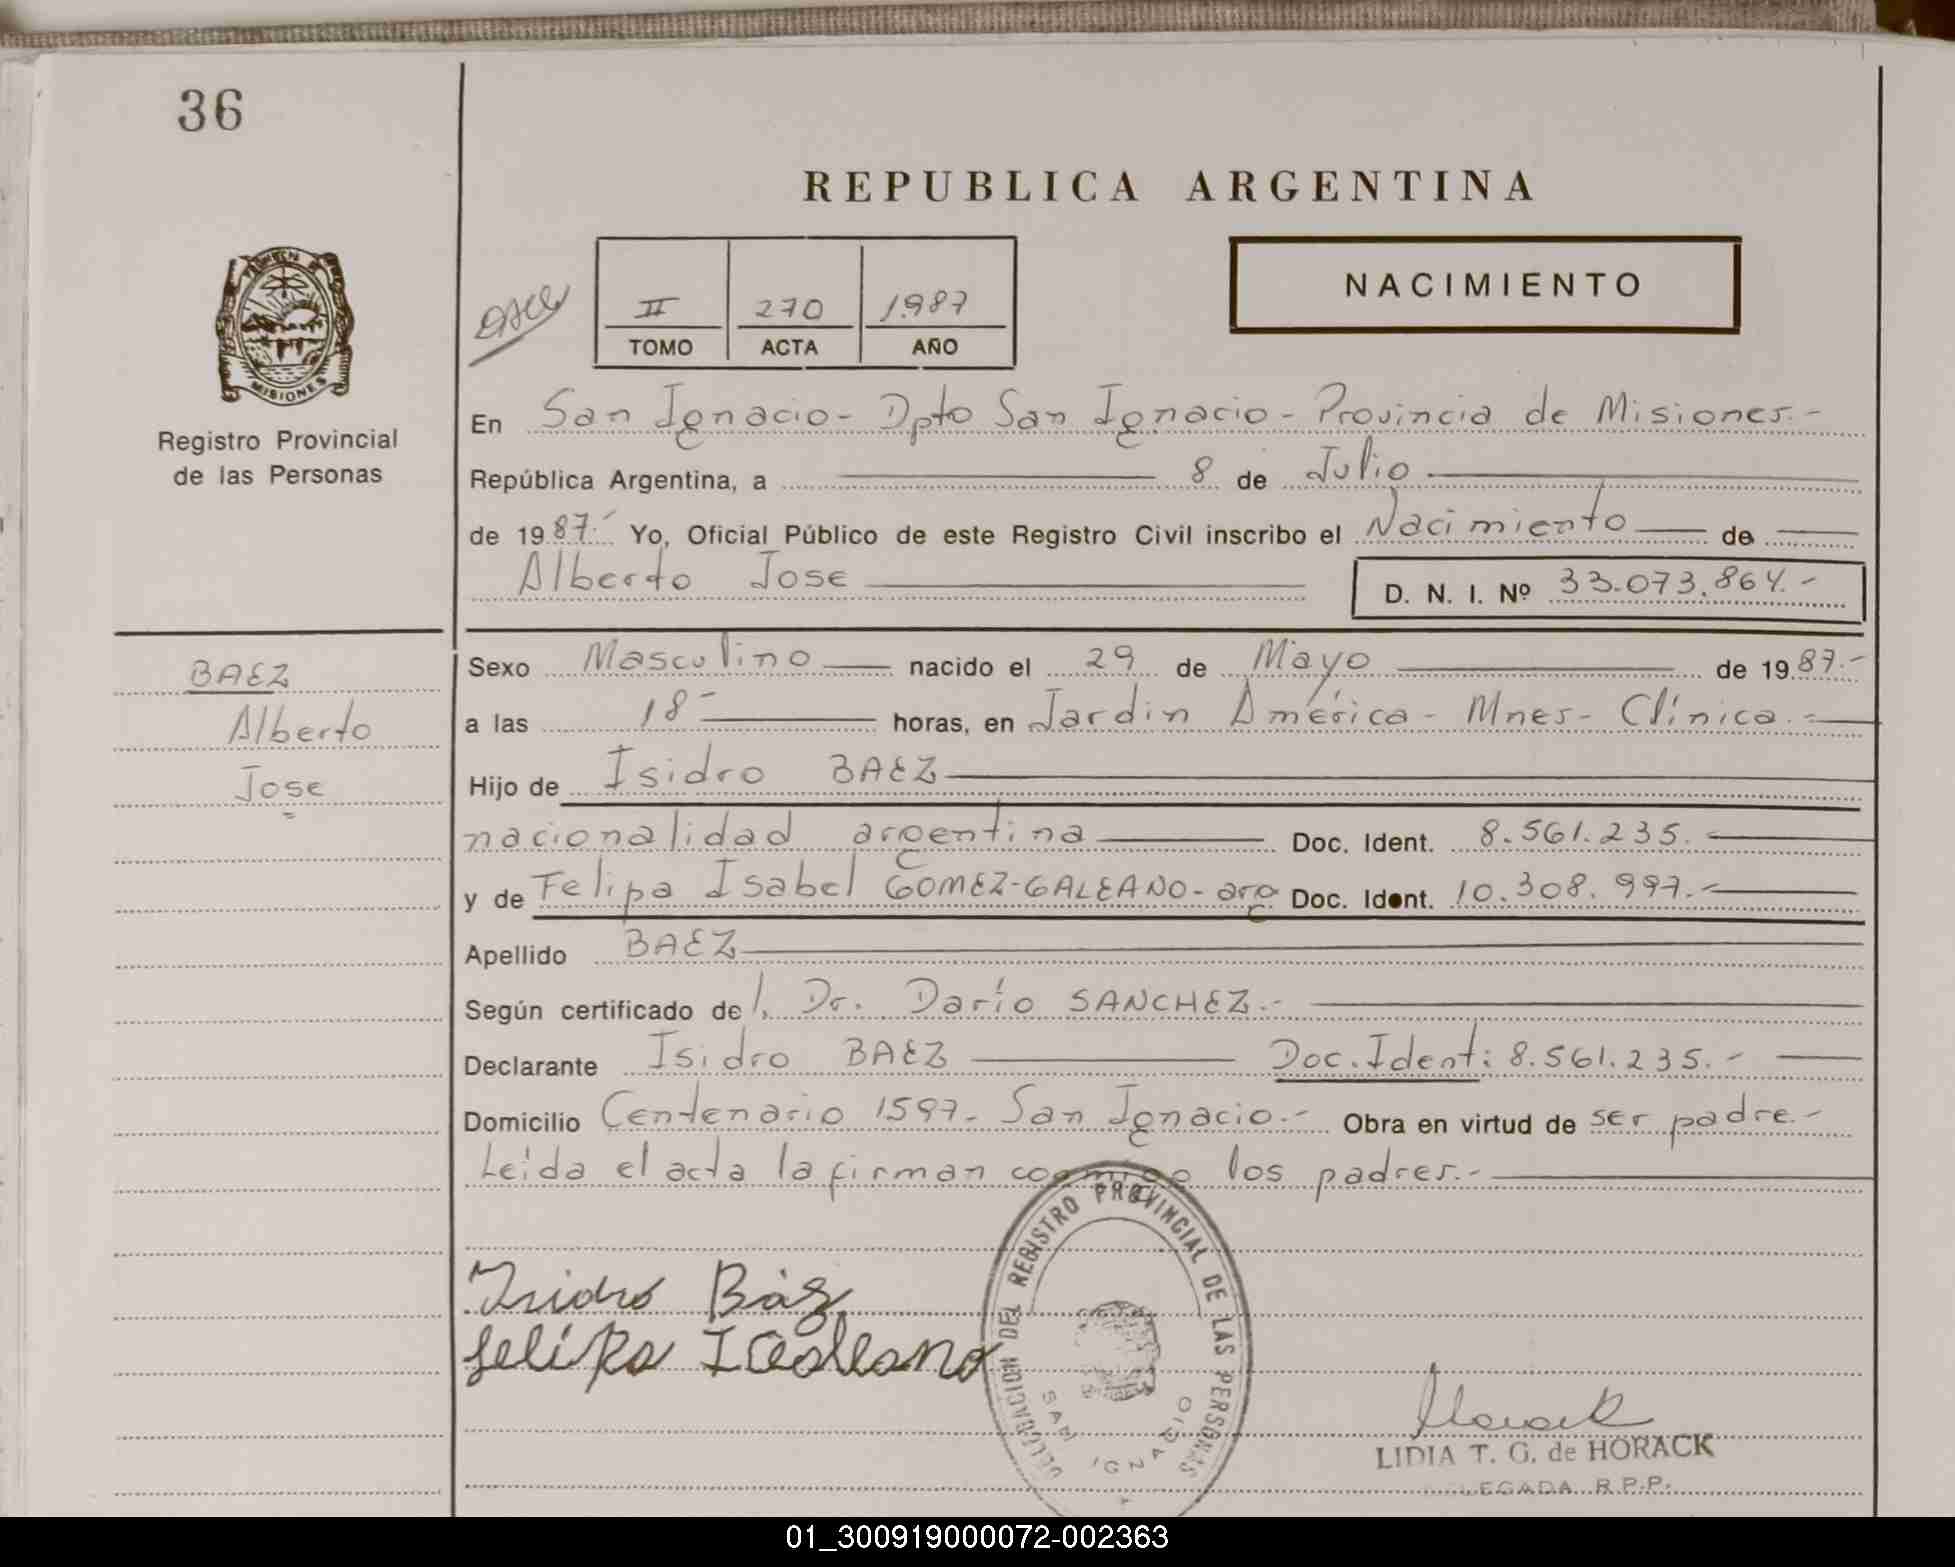 36
REPUBLICA ARGENTINA
NACIMIENTO
II 270 1.987
TOMO ACTA AÑO
MISIONES
Registro Provincial
de las Personas
En San Ignacio - Dpto San Ignacio - Provincia de Misiones.-
República Argentina, a 8 de Julio
de 1987.- Yo, Oficial Público de este Registro Civil inscribo el Nacimiento de
Alberto Jose D. N. I. Nº 33.073.864.-
BAEZ
Alberto
Jose
Sexo Masculino nacido el 29 de Mayo de 1987.-
a las 18- horas, en Jardin América - Mnes - Clínica.-
Hijo de Isidro BAEZ
nacionalidad argentina Doc. Ident. 8.561.235.-
y de Felipa Isabel GOMEZ-GALEANO - arg Doc. Ident. 10.308.997.-
Apellido BAEZ
Según certificado del, Dr. Darío SANCHEZ.-
Declarante Isidro BAEZ Doc. Ident: 8.561.235.-
Domicilio Centenario 1597- San Ignacio.- Obra en virtud de ser padre.-
Leída el acta la firman conmigo los padres.-
Isidro Báz
felipa I Galeano
DELEGACION DEL REGISTRO PROVINCIAL DE LAS PERSONAS
SAN IGNACIO
Horack
LIDIA T. G. de HORACK
DELEGADA R.P.P.
01_300919000072-002363